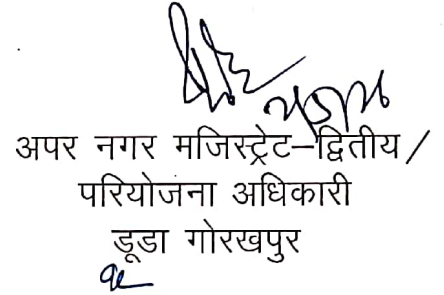 अपर नगर मजिस्ट्रेट–द्वितीय/
परियोजना अधिकारी
डूडा गोरखपुर